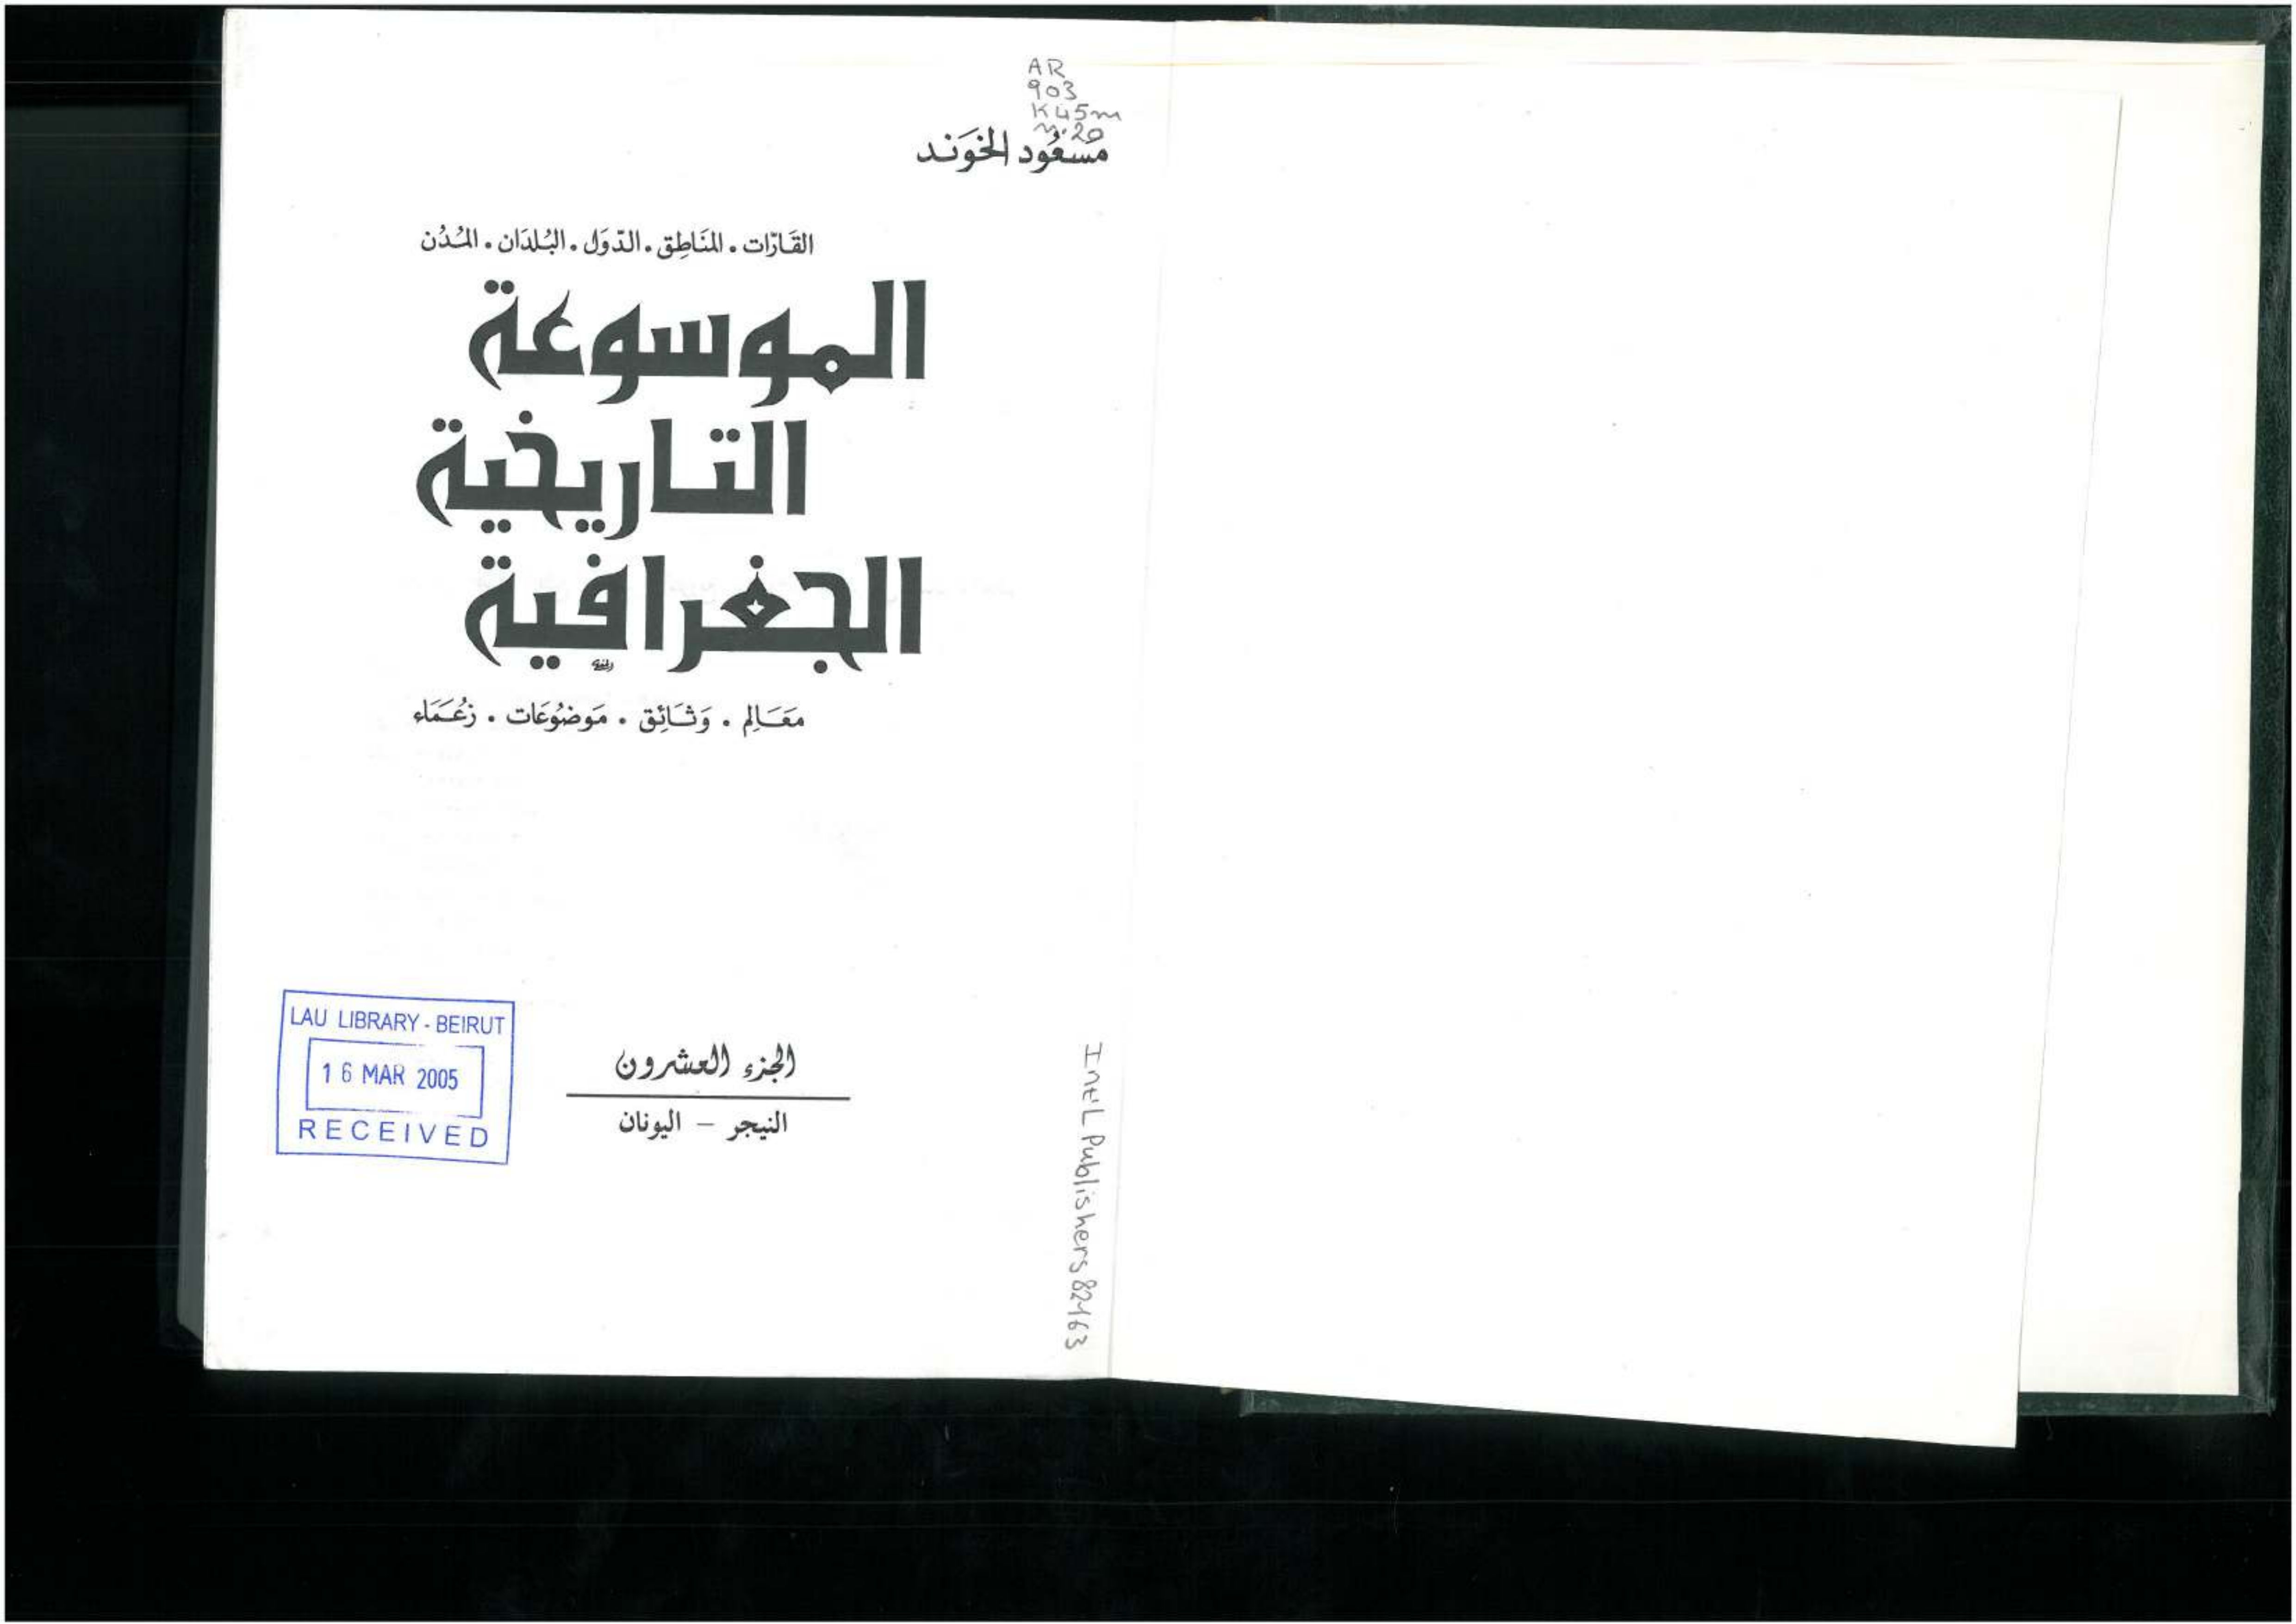 AR
903
K45m
v.20
مَسْعُود الخَوَند
القَارّات . المَنَاطِق . الدّوَل . البُلدَان . المُدُن
الموسوعة
التاريخية
الجغرافية
مَعَالِم . وَثَائِق . مَوضُوعَات . زُعَمَاء
LAU LIBRARY - BEIRUT
16 MAR 2005
RECEIVED
الجزء العشرون
النيجر – اليونان
Int'L Publishers 82463